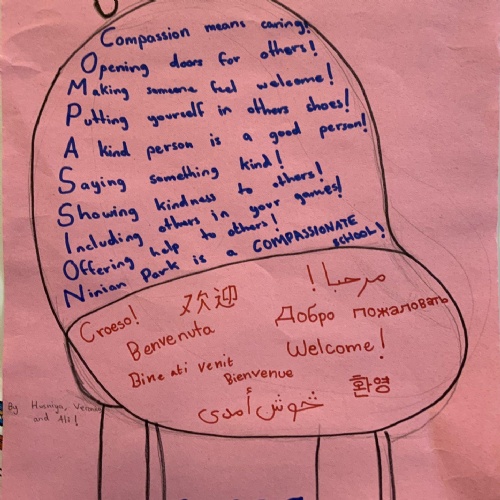 Compassion means caring!
Opening doors for others!
Making someone feel welcome!
Putting yourself in others shoes!
A kind person is a good person!
Saying something kind!
Showing kindness to others!
Including others in your games!
Offering help to others!
Ninian Park is a COMPASSIONATE SCHOOL!
Croeso!
欢迎
مرحبا!
Benvenuta
Добро пожаловать
Bine ati venit
Welcome!
Bienvenue
خوش أمدی
환영
By Husniya,
and Ali!